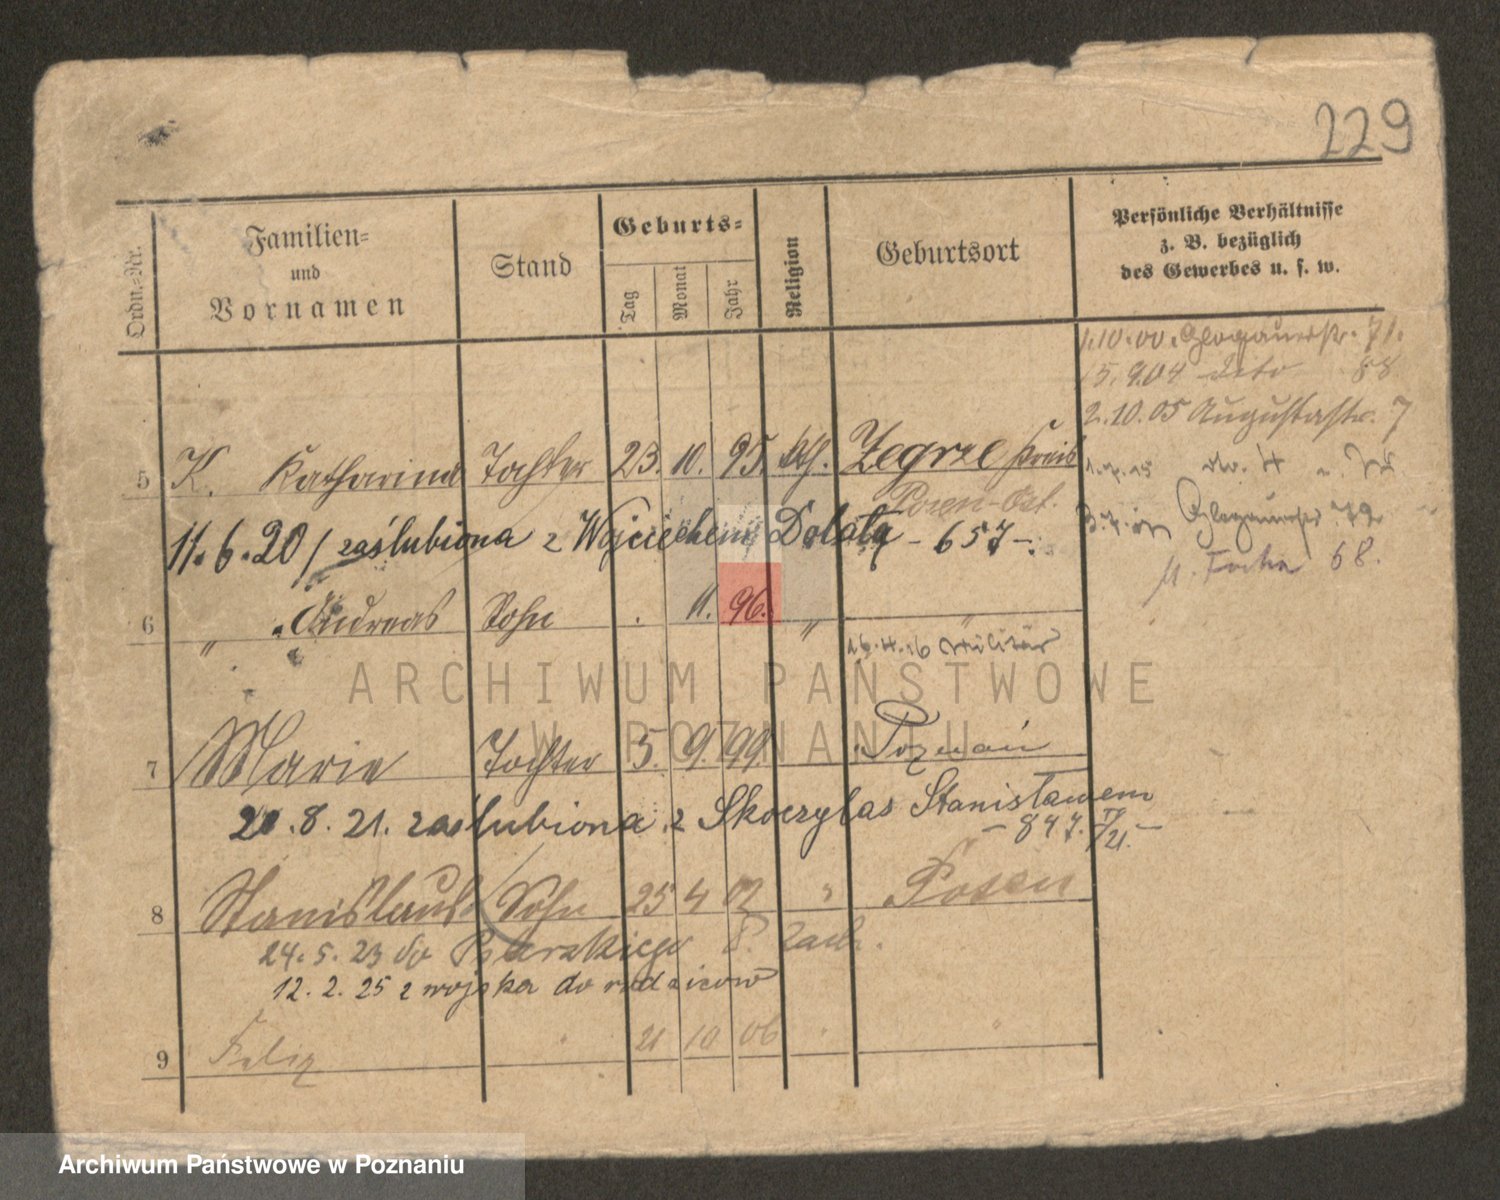 229
Ordn.-Nr.
Familien-
und
Vornamen
Stand
Geburts-
Tag
Monat
Jahr
Religion
Geburtsort
Persönliche Verhältnisse
z. B. bezüglich
des Gewerbes u. s. w.
1.10.00. Glogauerstr. 71.
15.9.04 dito 88
2.10.05 Augustastr. 7
5 K. Katharina Tochter 23. 10. 95. kth. Zegrze Kreis
Posen-Ost.
11.6.20 / zaślubiona z Wojciechem Dolatą - 657 -
Glogauerstr. 72
M. Focha 68.
6 " Andreas Sohn . 11. 96. " "
26.4.16 Militär
ARCHIWUM PAŃSTWOWE
W POZNANIU
7 Marie Tochter 5. 9. 99. Poznań
20.8.21. zaślubiona z Skoczylas Stanisławem
- 847. IV/21. -
8 Stanislaus Sohn 25 4 02 " Posen
24.5.23 do
12.2.25 z wojska do rodziców
9 Felix " 21 10 06 " "
Archiwum Państwowe w Poznaniu